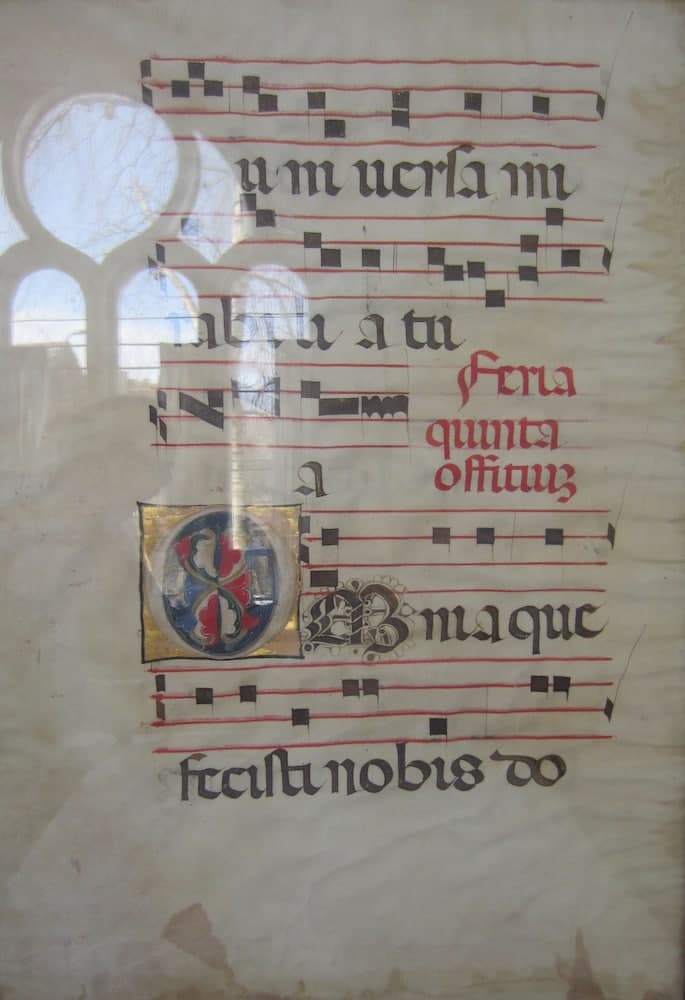 uni uersa mi
rabili a tu
Feria
quinta
a
offitiuʒ
OMnia que
fecisti nobis do